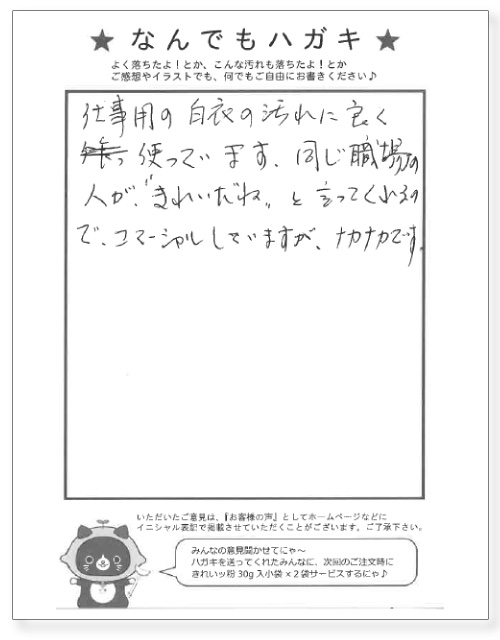 ★ なんでもハガキ ★
よく落ちたよ！とか、こんな汚れも落ちたよ！とか
ご感想やイラストでも、何でもご自由にお書きください♪
仕事用の白衣の汚れに良く
使っています、同じ職場の
人が、"きれいだね"と言ってくれるの
で、コマーシャルしていますが、ナカナカです。
いただいたご意見は、『お客様の声』としてホームページなどに
イニシャル表記で掲載させていただくことがございます。ご了承下さい。
みんなの意見聞かせてにゃ～
ハガキを送ってくれたみんなに、次回のご注文時に
きれいッ粉 30g 入小袋×2袋サービスするにゃ♪